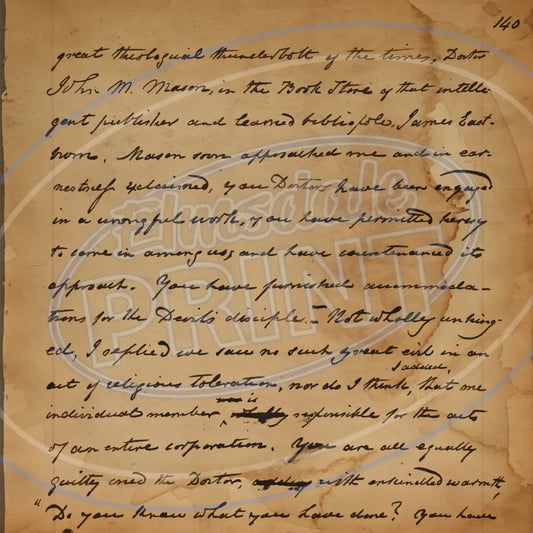 140
great theological thunderbolt of the times, Doctor
John M. Mason, in the Book Store of that intelli-
gent publisher and learned bibliopole, James East-
burn. Mason soon approached me and in ear-
nestness exclaimed, you Doctors have been engaged
in a wrongful work, you have permitted heresy
to come in among us, and have countenanced its
approach. You have furnished accommoda-
tions for the Devil's disciple. – Not wholly unhing-
ed, I replied we saw no such great evil in an
I added,
act of religious toleration, nor do I think, that one
is
individual member responsible for the acts
of an entire corporation. You are all equally
guilty cried the Doctor, with enkindled warmth,
"Do you know what you have done? You have
Elmsdale
PRINT